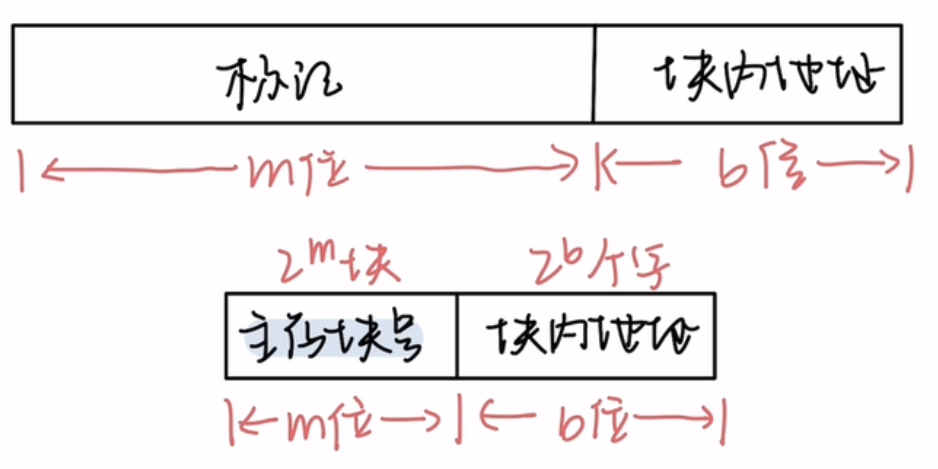 标记 块内地址
m位 b位
2^m块 2^b个字
主存块号 块内地址
m位 b位